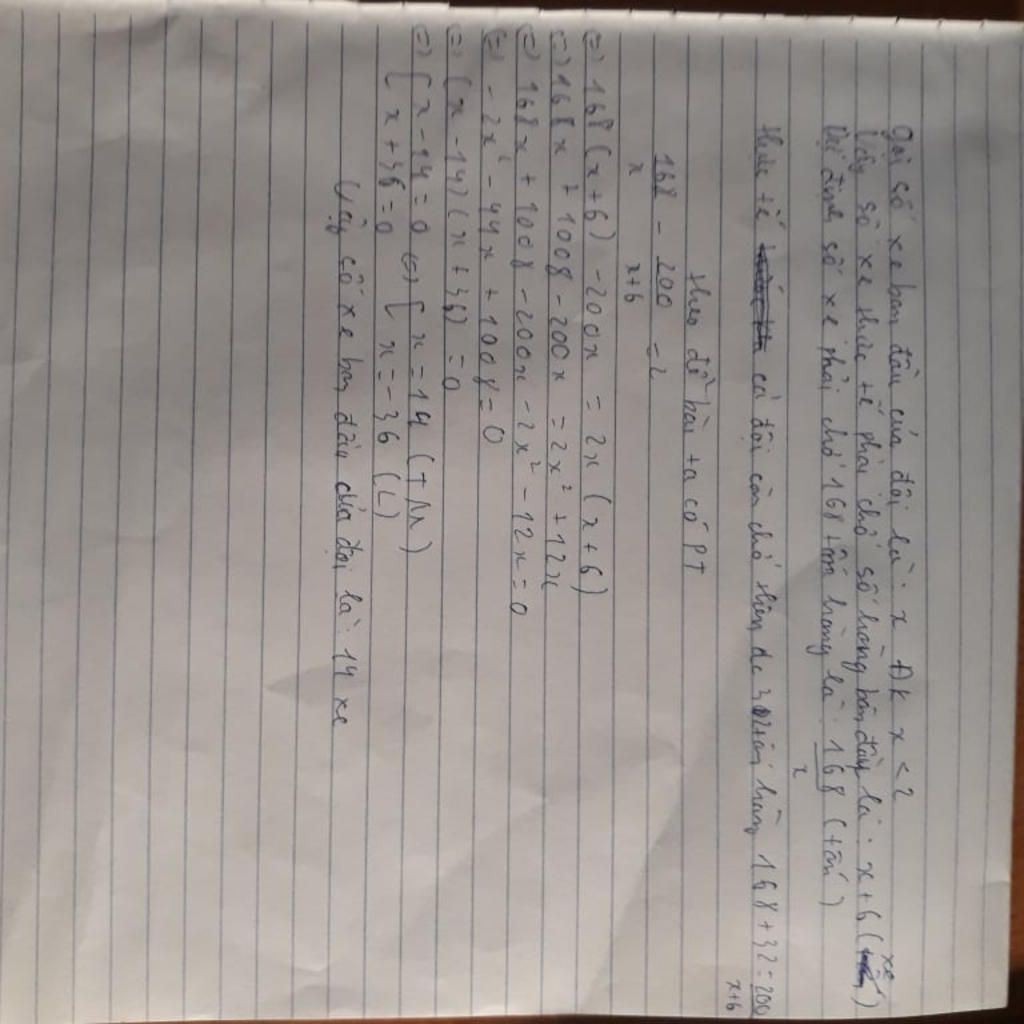 Gọi số xe ban đầu của đội là: x ĐK x < 2
Vậy số xe thực tế phải chở số hàng ban đầu là: x+6 (xe)
Dự định số xe phải chở 168 tấn hàng là: 168/x (tấn)
thực tế cả đội còn chở thêm 32 tấn hàng 168 + 32 = 200/x+6
theo đề bài ta có PT
168/x - 200/x+6 = 2
(=) 168(x+6) - 200x = 2x(x+6)
(=) 168x + 1008 - 200x = 2x² + 12x
(=) 168x + 1008 - 200x - 2x² - 12x = 0
(=) - 2x² - 44x + 1008 = 0
(=) (x - 14)(x + 36) = 0
(=) [ x - 14 = 0 (=) [ x = 14 (TM)
[ x + 36 = 0 [ x = -36 (L)
Vậy số xe ban đầu của đội là: 14 xe